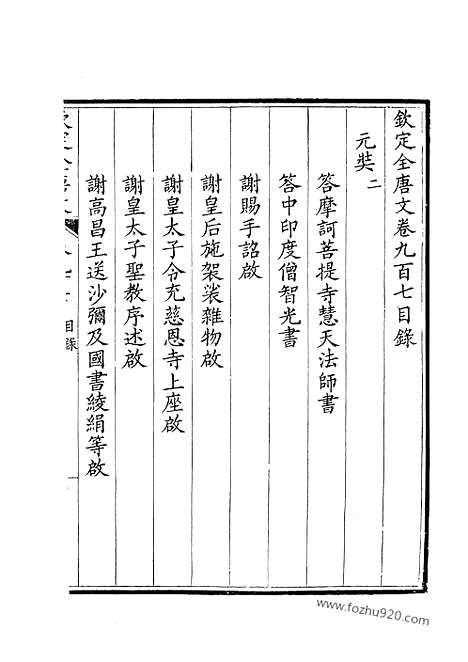 欽定全唐文卷九百七目錄
元奘二
答摩訶菩提寺慧天法師書
答中印度僧智光書
謝賜手詔啟
謝皇后施袈裟雜物啟
謝皇太子令充慈恩寺上座啟
謝皇太子聖教序述啟
謝高昌王送沙彌及國書綾絹等啟
目錄
一
www.fozhu920.com